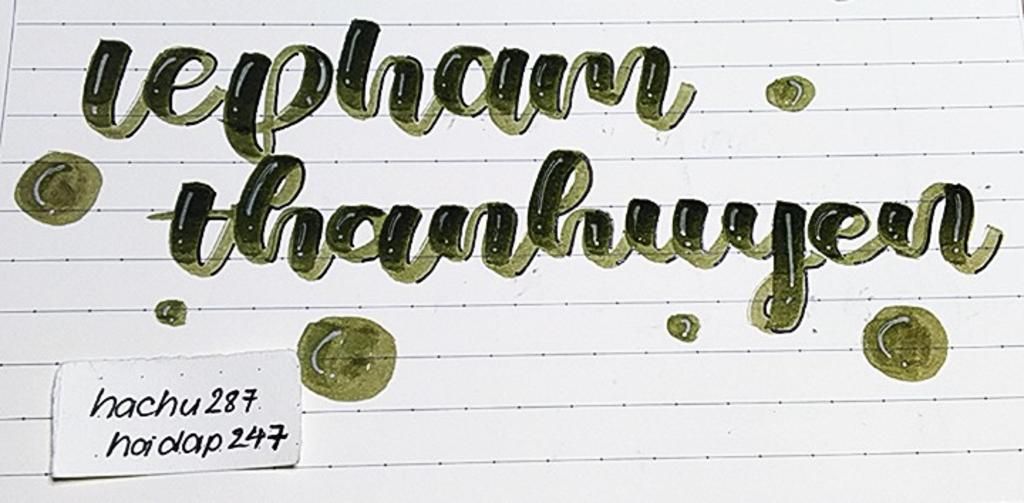 lepham
thanhuyen
hachu287
hoidap247